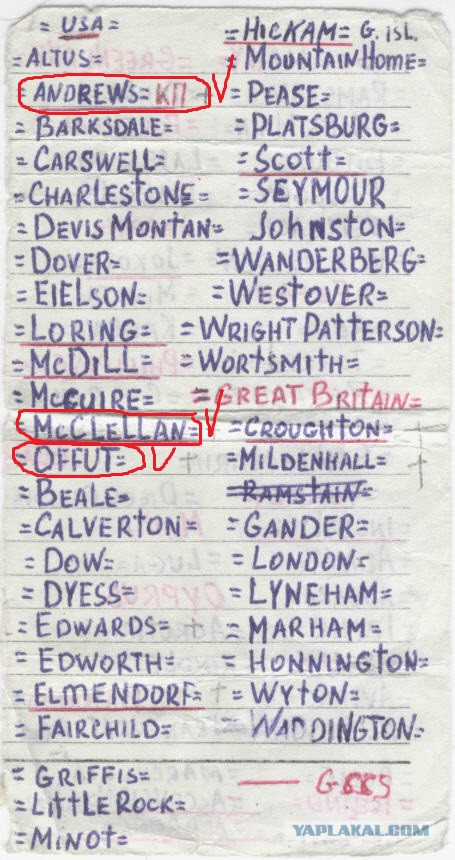 = USA =
= ALTUS =
= ANDREWS = КП +
= BARKSDALE =
= CARSWELL =
= CHARLESTONE =
= DEVIS MONTAN =
= DOVER =
= EIELSON =
= LORING =
= McDILL =
= McGUIRE =
= McCLELLAN =
= OFFUT = +
= BEALE =
= CALVERTON =
= DOW =
= DYESS =
= EDWARDS = +
= EDWORTH =
= ELMENDORF = +
= FAIRCHILD =
= GRIFFIS =
= LITTLE ROCK =
= MINOT =
= HICKAM = G. ISL.
= MOUNTAIN HOME =
= PEASE =
= PLATSBURG =
= SCOTT =
= SEYMOUR
JOHNSTON =
= WANDERBERG =
= WESTOVER =
= WRIGHT PATTERSON =
= WORTSMITH =
= GREAT BRITAIN =
= CROUGHTON =
= MILDENHALL = +
= RAMSTAIN =
= GANDER =
= LONDON =
= LYNEHAM =
= MARHAM =
= HONNINGTON =
= WYTON =
= WADDINGTON =
YAPLAKAL.COM